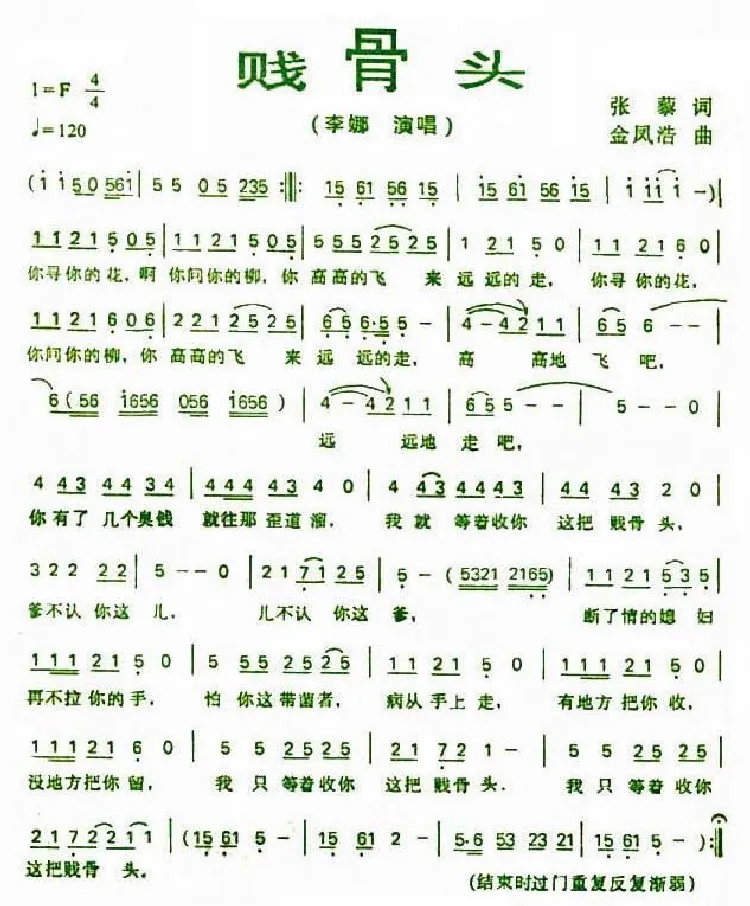 贱骨头
1=F 4/4
♩=120
（李娜 演唱）
张藜 词
金凤浩 曲
(i i 5 0 561 | 5 5 05 235 :||: 15 61 56 15 | i5 61 56 i5 | i i i i -)|
1 1 2 1 5 0 5 | 1 1 2 1 5 0 5 | 5 5 5 2 5 2 5 | 1 2 1 5 0 | 1 1 2 1 6 0 |
你寻你的花，啊 你问你的柳，你 高高的飞 来 远远的走， 你寻你的花，
1 1 2 1 6 0 6 | 2 2 1 2 5 2 5 | 6 5 6·5 5 - | 4 - 4 2 1 1 | 6 5 6 - - |
你问你的柳，你 高高的飞 来 远 远的走， 高 高地 飞 吧，
6 ( 56 i656 056 i656 ) | 4 - 4 2 1 1 | 6 5 5 - - | 5 - - 0 |
远 远地 走 吧，
4 43 44 34 | 444 43 4 0 | 4 43 44 43 | 44 43 2 0 |
你有了 几个臭钱 就往那 歪道溜， 我就 等着收你 这把 贱骨 头，
3 2 2 22 | 5 - - 0 | 21 71 25 | 5 - ( 5321 2165 ) | 11 21 535 |
爹不认 你这 儿， 儿不认 你这 爹， 断了情的媳 妇
111 21 5 0 | 5 55 25 25 | 11 21 5 0 | 111 21 5 0 |
再不拉 你的 手， 怕 你这 带菌者， 病从 手上 走， 有地方 把你 收，
111 21 6 0 | 5 5 25 25 | 21 72 1 - | 5 5 25 25 |
没地方把你 留， 我 只 等着收你 这把 贱骨 头． 我 只 等着收你
21 72 21 1 | (15 61 5 - | 15 61 2 - | 5·6 53 23 21 | 15 61 5 -) :||
这把贱骨 头．
(结束时过门重复反复渐弱)